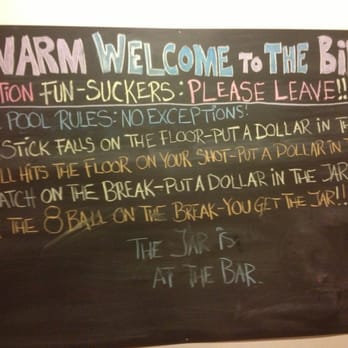 WARM WELCOME TO THE Bi
TION FUN-SUCKERS: PLEASE LEAVE!!
POOL RULES: NO EXCEPTIONS!
STICK FALLS ON THE FLOOR-PUT A DOLLAR IN TH
LL HITS THE FLOOR ON YOUR SHOT-PUT A DOLLAR IN T
ATCH ON THE BREAK-PUT A DOLLAR IN THE JAR
THE 8 BALL ON THE BREAK-YOU GET THE JAR!!
THE JAR iS
AT THE BAR.